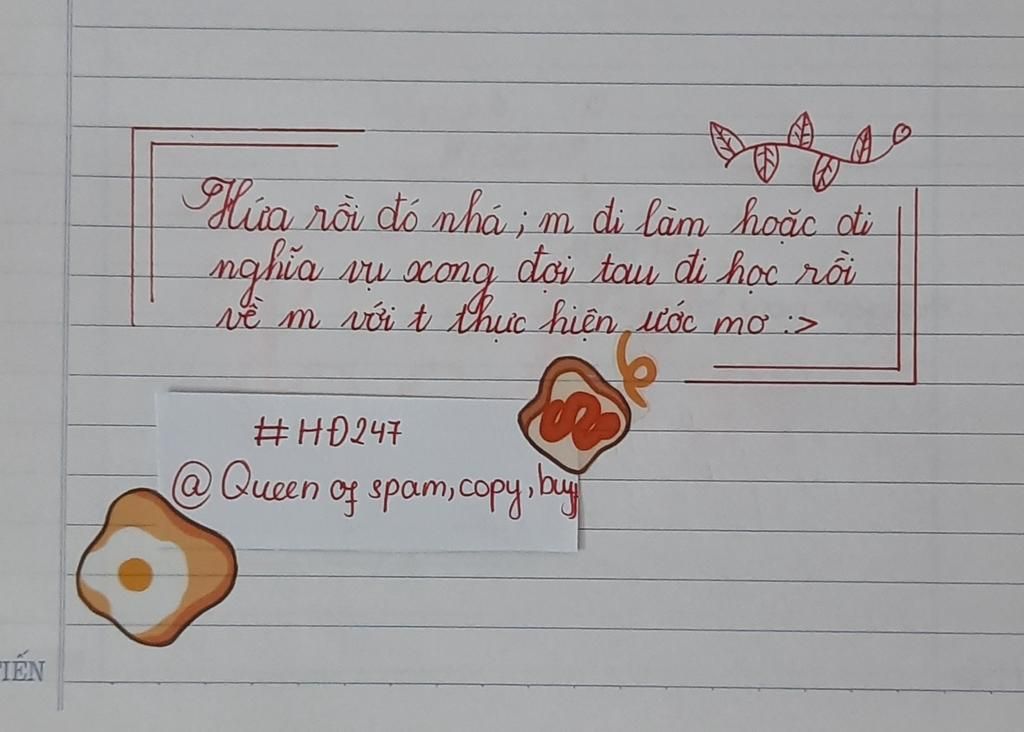 Hứa rồi đó nhá; m đi làm hoặc đi
nghĩa vụ xong đợi tau đi học rồi
về m với t thực hiện ước mơ :>
#HĐ247
@Queen of spam, copy, buy
TIẾN